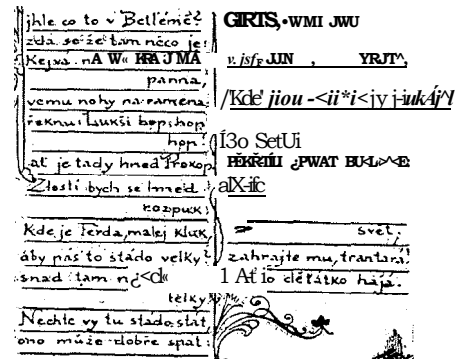 jhle co to v Betlémě?
zdá se že tam něco je:
Kejva. nA W« KRA J MÁ
panna,
vemu nohy na ramena:
řeknu: Lukši hop, hop
hop
ať je tady hned Prokop
Zlostí bych se hned
rozpuk:
Kde je Ferda, malej kluk,
áby pás to stádo velký
snad tam n¿<cl«
telky
Nechte vy tu stádo stát
ono může dobře spát:
GIRTS,•WMI JWU
v. jsfF JJN , YRJT^,
/'Kde' jiou -<ii*i<jy j-iukÁj^l
Í3o SetUi
PĚKŘTÍLI ¿PWAT BU<L>^<E:
alX-ifc
svět.
zahrajte mu, trantará!
1 Ať io děťátko hájá.